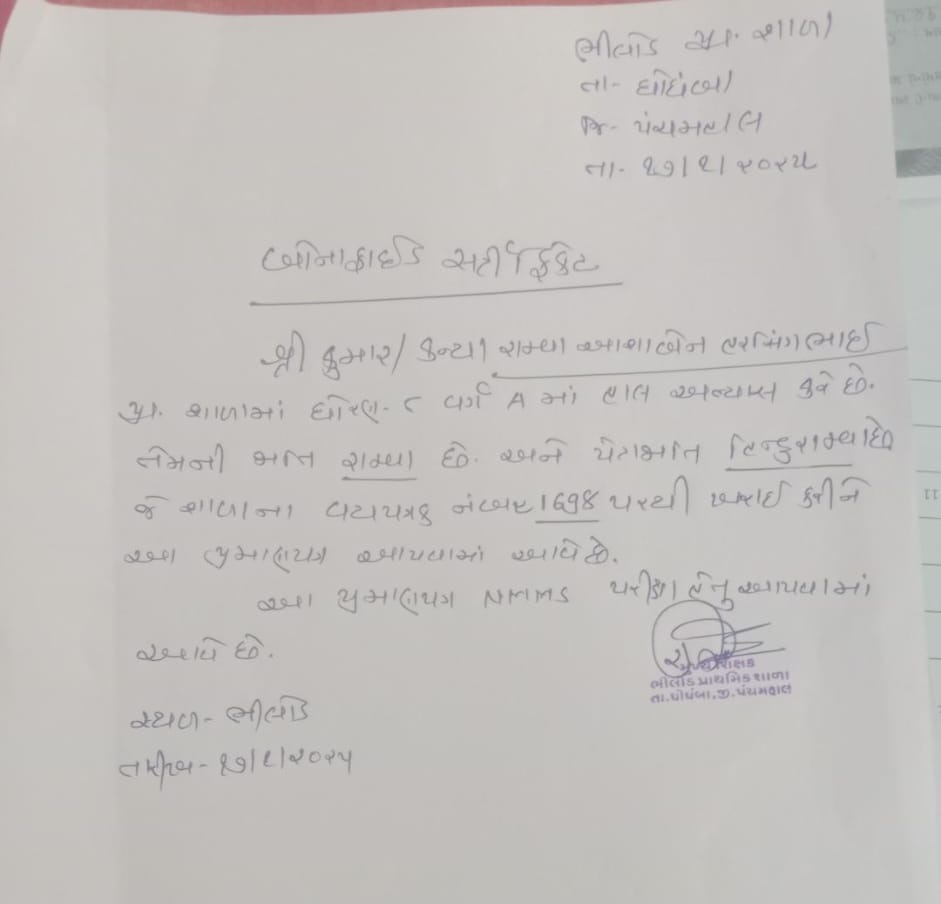 ભીલોડ પ્રા. શાળા
તા- ઘોઘંબા
જિ- પંચમહાલ
તા- ૧૭/૧/૨૦૨૫
બોનાફાઈડ સર્ટીફિકેટ
શ્રી કુમાર/ કન્યા આશાબેન
પ્રા. શાળામાં ધોરણ- ૮ વર્ગ A માં હાલ અભ્યાસ કરે છે.
તેમની જાતિ છે. અને પેટાજાતિ હિન્દુ છે
જે શાળાના વયપત્રક નંબર 1698 પરથી ખરાઈ કરીને
આ પ્રમાણપત્ર આપવામાં આવે છે.
આ પ્રમાણપત્ર NMMS પરીક્ષા હેતુ આપવામાં
આવે છે.
મુખ્ય શિક્ષક
ભીલોડ પ્રાથમિક શાળા
તા.ઘોઘંબા, જી.પંચમહાલ
સ્થળ- ભીલોડ
તારીખ- ૧૭/૧/૨૦૨૫